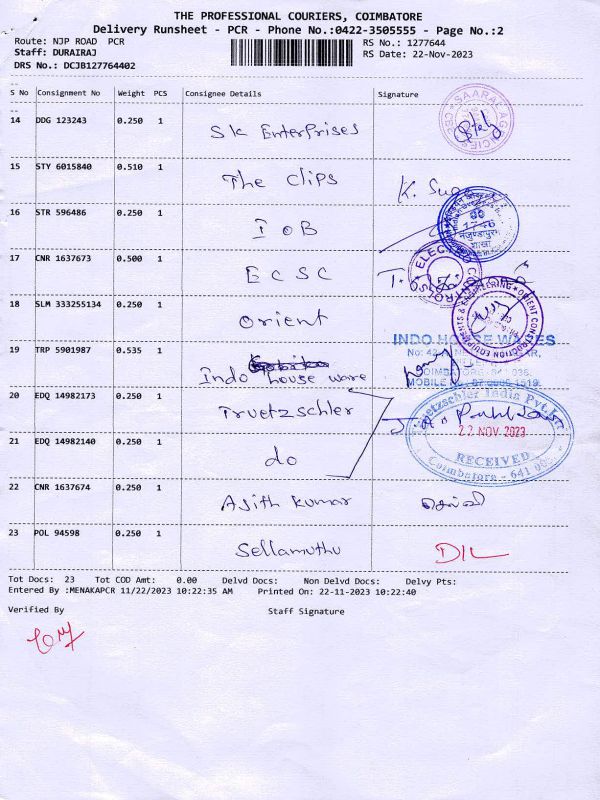 THE PROFESSIONAL COURIERS, COIMBATORE
Delivery Runsheet - PCR - Phone No.:0422-3505555 - Page No.:2
Route: NJP ROAD PCR
RS No.: 1277644
Staff: DURAIRAJ
RS Date: 22-Nov-2023
DRS No.: DCJB127764402
S No Consignment No Weight PCS Consignee Details Signature
14 DDG 123243 0.250 1 SK Enterprises
SAARAL AGENCIES
15 STY 6015840 0.510 1 The Clips K.
16 STR 596486 0.250 1 IOB
17 CNR 1637673 0.500 1 ECSC
ELECTRO CONTROLS
18 SLM 333255134 0.250 1 Orient
ORIENT CONSTRUCTION EQUIPMENTS & ENGINEERING
19 TRP 5901987 0.535 1 Indo house ware
INDO HOUSE WARES
20 EDQ 14982173 0.250 1 Truetzschler
Truetzschler India Pvt. Ltd
22 NOV 2023
RECEIVED
Coimbatore - 641
21 EDQ 14982140 0.250 1 do
22 CNR 1637674 0.250 1 Ajith Kumar
23 POL 94598 0.250 1 Sellamuthu
Tot Docs: 23 Tot COD Amt: 0.00 Delvd Docs: Non Delvd Docs: Delvy Pts:
Entered By :MENAKAPCR 11/22/2023 10:22:35 AM Printed On: 22-11-2023 10:22:40
Verified By Staff Signature